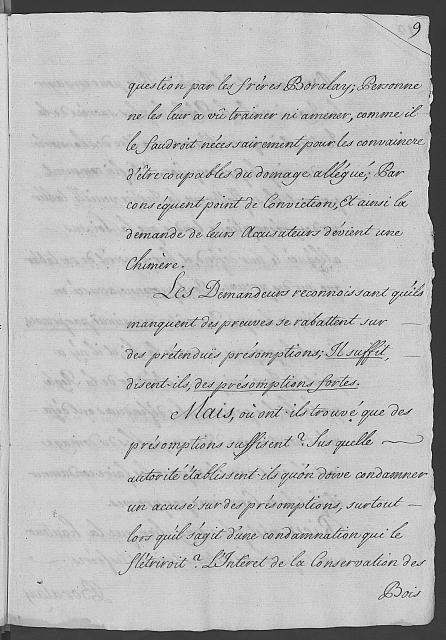 9
question par les fréres Boralay; Personne
ne les leur a vû trainer ni amener, comme il
le faudroit nécessairement pour les convaincre
d'être coupables du domage allégué; Par
conséquent point de Conviction; Et ainsi la
demande de leurs Accusateurs devient une
Chimére.
Les Demandeurs reconnoissant qu'ils
manquent des preuves se rabattent sur
des prétenduës présomptions; Il suffit,
disent-ils, des présomptions fortes.
Mais, où ont-ils trouvé que des
présomptions suffisent? Sus quelle
autorité établissent ils qu'on doive condamner
un accusé sur des présomptions, surtout
lors qu'il s'agit d'une condamnation qui le
flétriroit? L'Intéret de la Conservation des
Bois